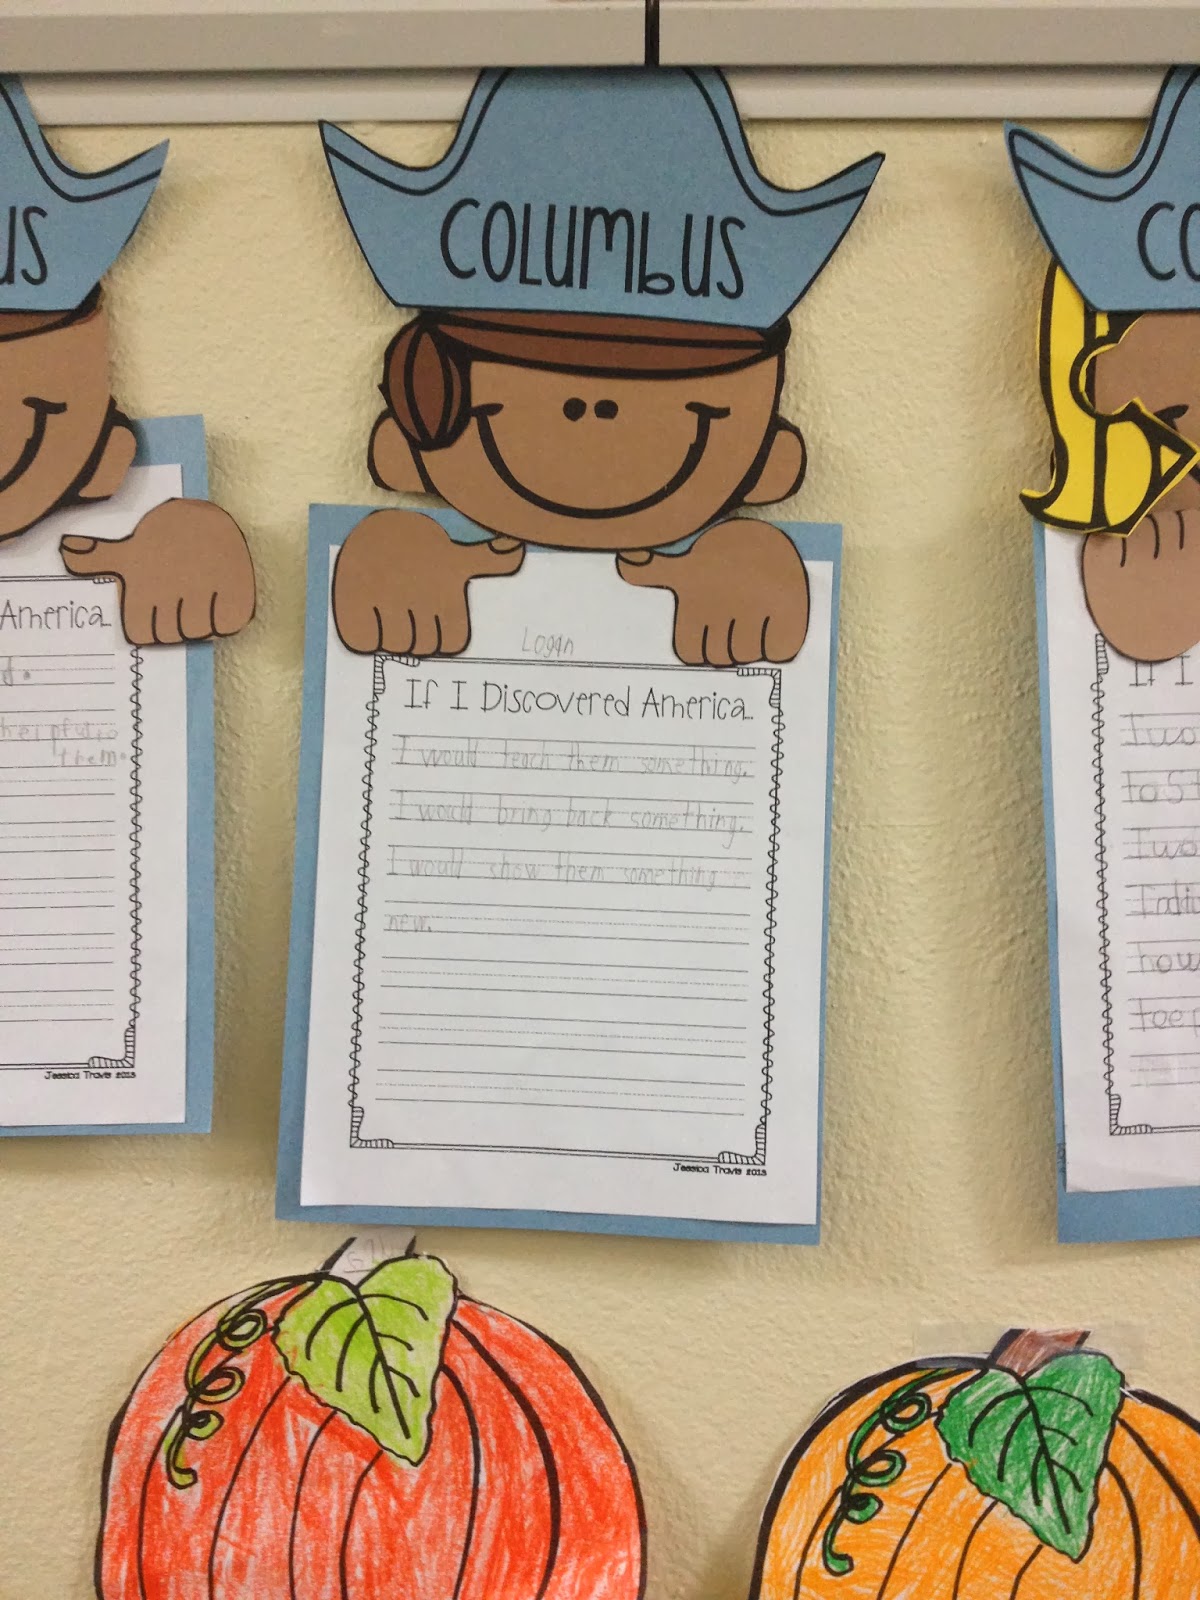 US
COLUMBUS
CO
America
d.
helpful to
them.
Jessica Travis 2013
Logan
If I Discovered America
I would teach them something.
I would bring back something.
I would show them something
new.
Jessica Travis 2013
If I
I wo
to st
I wo
India
how